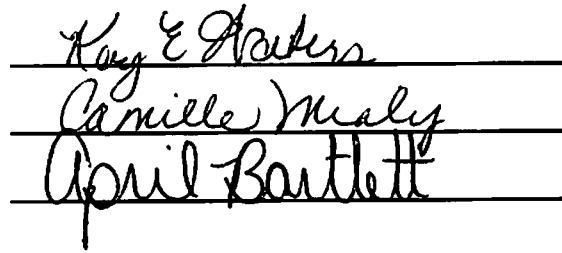 Kay E Waters
Camille Mealy
April Bartlett